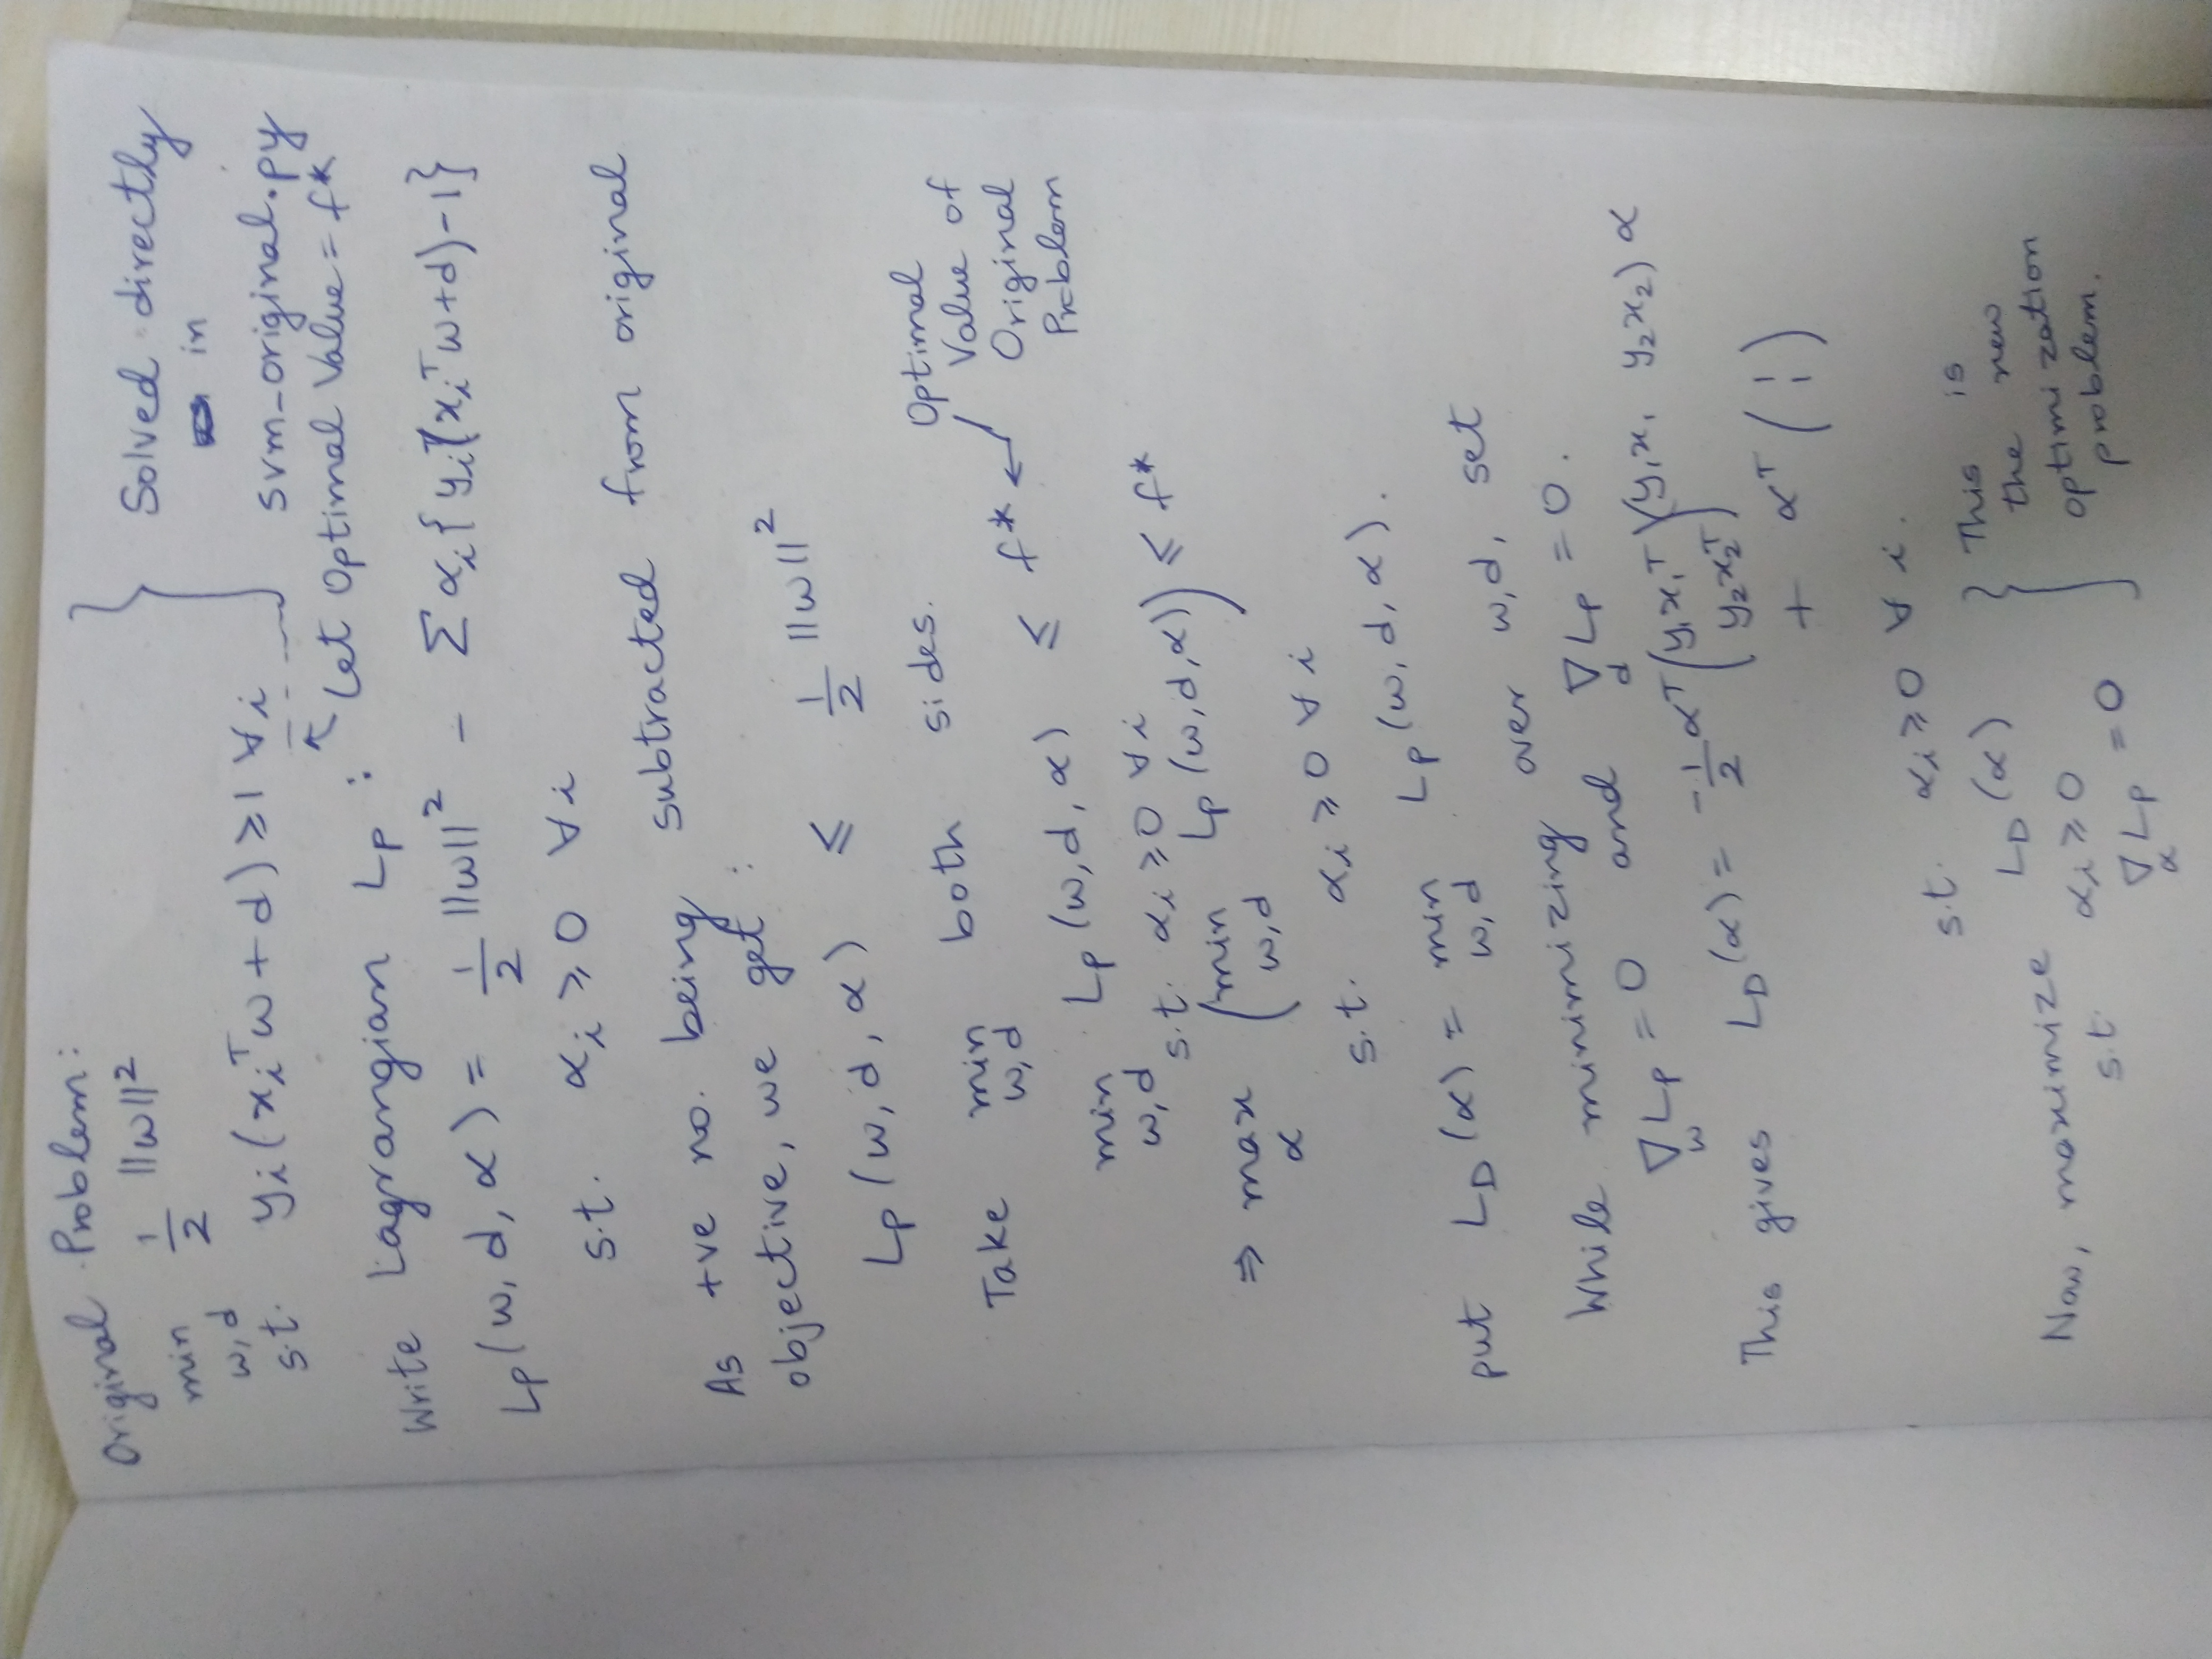 Original Problem:
min 1/2 ||w||²
w,d
s.t. yᵢ(xᵢᵀw + d) ≥ 1 ∀ i
Solved directly
in
svm_original.py
↖ Let Optimal Value = f*
Write Lagrangian Lp :
Lp(w, d, α) = 1/2 ||w||² - Σ αᵢ{ yᵢ(xᵢᵀw+d)-1}
s.t. αᵢ ≥ 0 ∀ i
As +ve no. being subtracted from original
objective, we get :
Lp(w, d, α) ≤ 1/2 ||w||²
Take min both sides.
w,d
min Lp(w,d,α) ≤ f* ←
w,d
Optimal
Value of
Original
Problem
s.t. αᵢ ≥ 0 ∀ i
⇒ max (min Lp(w,d,α)) ≤ f*
α w,d
s.t. αᵢ ≥ 0 ∀ i
put L_D(α) = min Lp(w, d, α).
w,d
While minimizing over w,d, set
∇Lp = 0 and ∇Lp = 0.
w d
This gives L_D(α) = -1/2 αᵀ (y₁x₁ᵀ y₂x₂ᵀ) (y₁x₁ y₂x₂) α
+ αᵀ (1 1)
s.t. αᵢ ≥ 0 ∀ i.
Now, maximize L_D(α)
s.t. αᵢ ≥ 0
∇Lp = 0
α
This is
the new
optimization
problem.